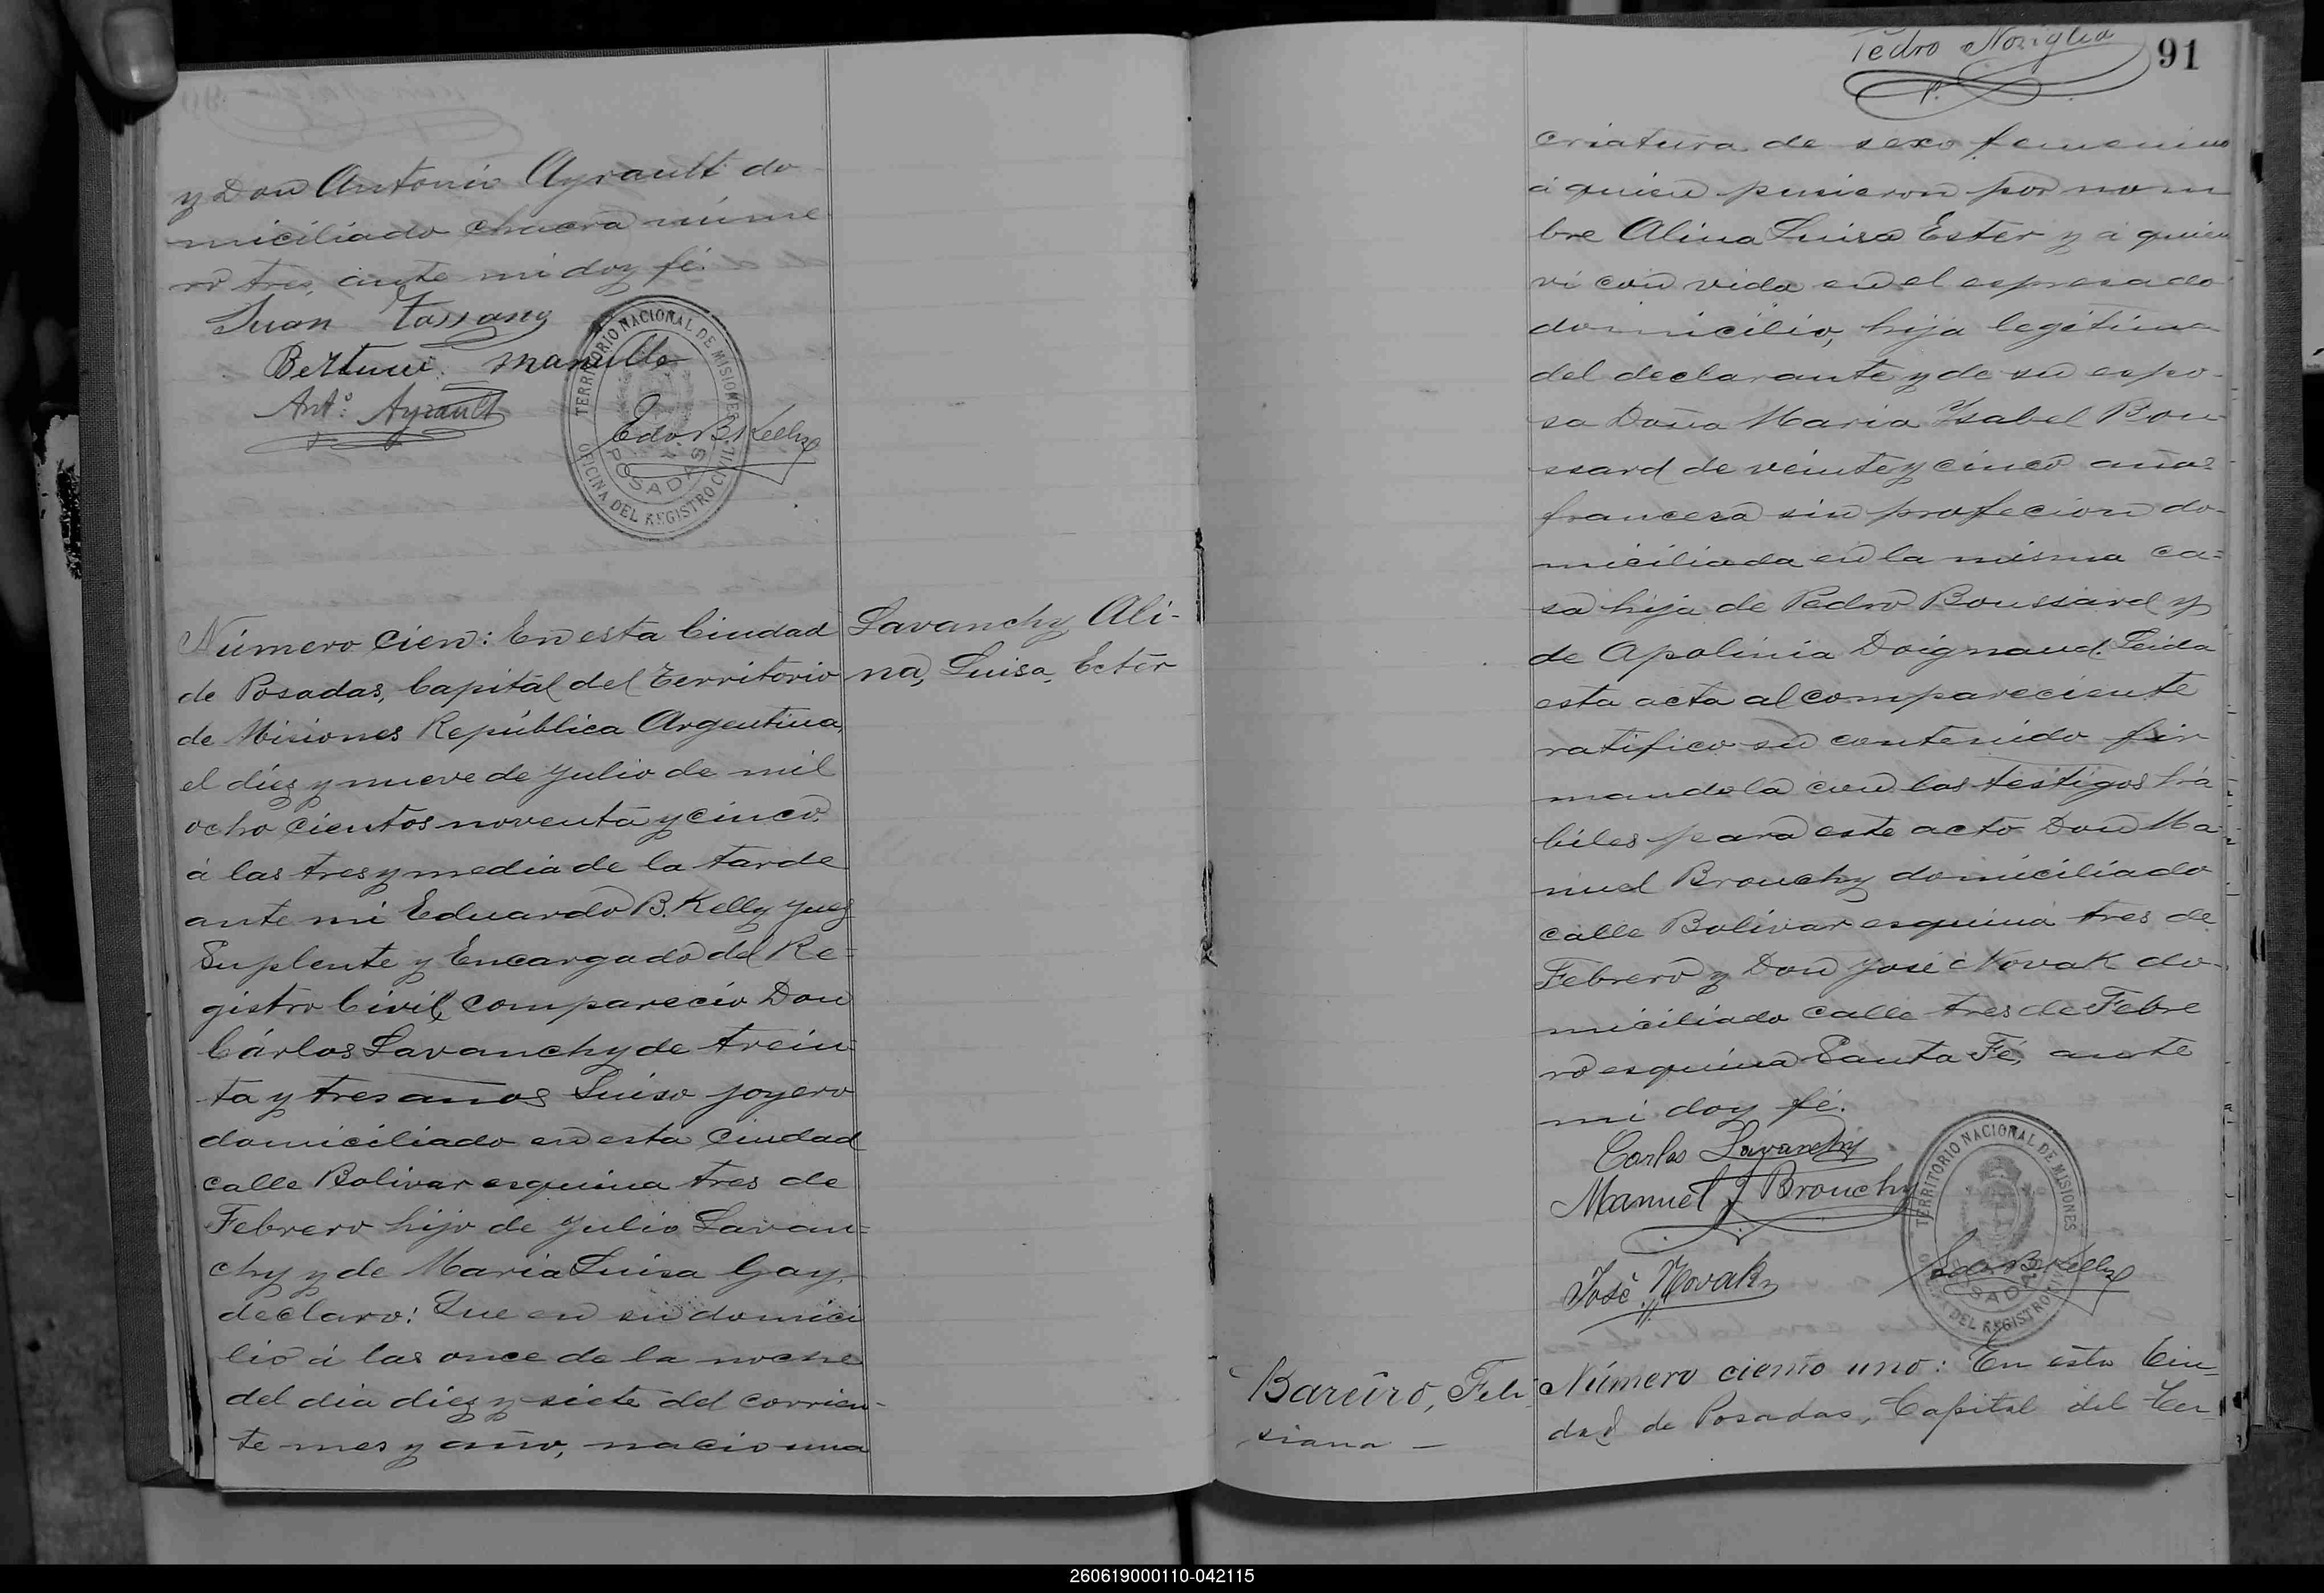 y Don Antonio Ayrault do
miciliado chacra núme
ro tres, ante mi doy fé.
Juan Tassany
Bertuni manulle
Anto: Ayrault
Edo. B. Kelly
TERRITORIO NACIONAL DE MISIONES
POSADAS
OFICINA DEL REGISTRO CIVIL
Número Cien: En esta Ciudad
de Posadas, Capital del Territorio
de Misiones República Argentina,
el diez y nueve de Julio de mil
ocho cientos noventa y cinco,
á las tres y media de la tarde
ante mi Eduardo B. Kelly Juez
Suplente y Encargado del Re=
gistro Civil, comparecio Don
Cárlos Lavanchy de trein
ta y tres años Suiso joyero
domiciliado en esta Ciudad
calle Bolivar esquina tres de
Febrero hijo de Julio Lavan=
chy y de Maria Luisa Gay,
declaro: Que en su domici
lio á las once de la noche
del dia diez y siete del corrien-
te mes y año, nacio una
Lavanchy Ali-
na, Luisa, Ecter
Pedro Noziglia
91
criatura de sexo femenino
á quien pusieron por nom
bre Alina Luisa Ester y á quien
vi con vida en el espresado
domicilio, hija legitima
del declarante y de su espo-
sa Doña Maria Ysabel Bou-
ssard de veinte y cinco años
francesa sin profecion do-
miciliada en la misma ca=
sa hija de Pedro Boussard y
de Apolinia Doignaud. Leida
esta acta al compareciente
ratifico su contenido fir
mandola con los testigos há
biles para este acto Don Ma-
nuel Brouchy domiciliado
calle Bolivar esquina tres de
Febrero y Don José Novak do-
miciliado calle tres de Febre
ro esquina Santa Fé, ante
mi doy fé.
Carlos Lavanchy
Manuel J Brouchy
José Novak
Edo. B. Kelly
TERRITORIO NACIONAL DE MISIONES
POSADAS
OFICINA DEL REGISTRO CIVIL
Bareiro, Feli
siana —
Número ciento uno: En esta Ciu-
dad de Posadas, Capital del Ter-
260619000110-042115